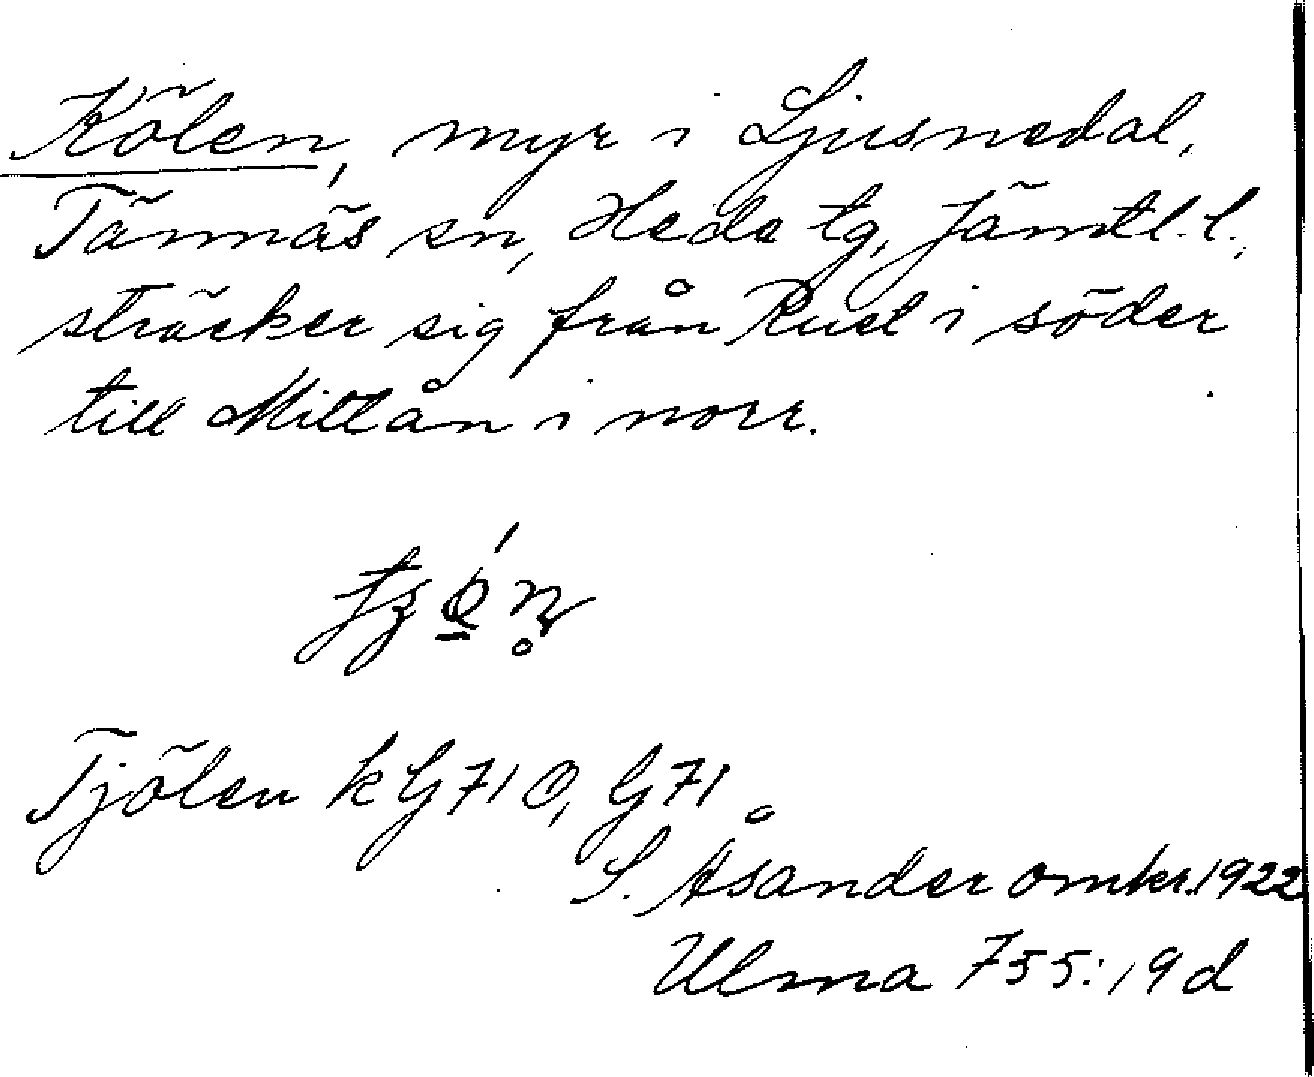 Kölen, myr i Ljusnedal,
Tännäs sn, Hede tg, Jämtl. l.,
sträcker sig från Ruet i söder
till Mittån i norr.
Tjölen k G 71 O, G 71
S. Åsander omkr. 1922
Ulma 755:19d